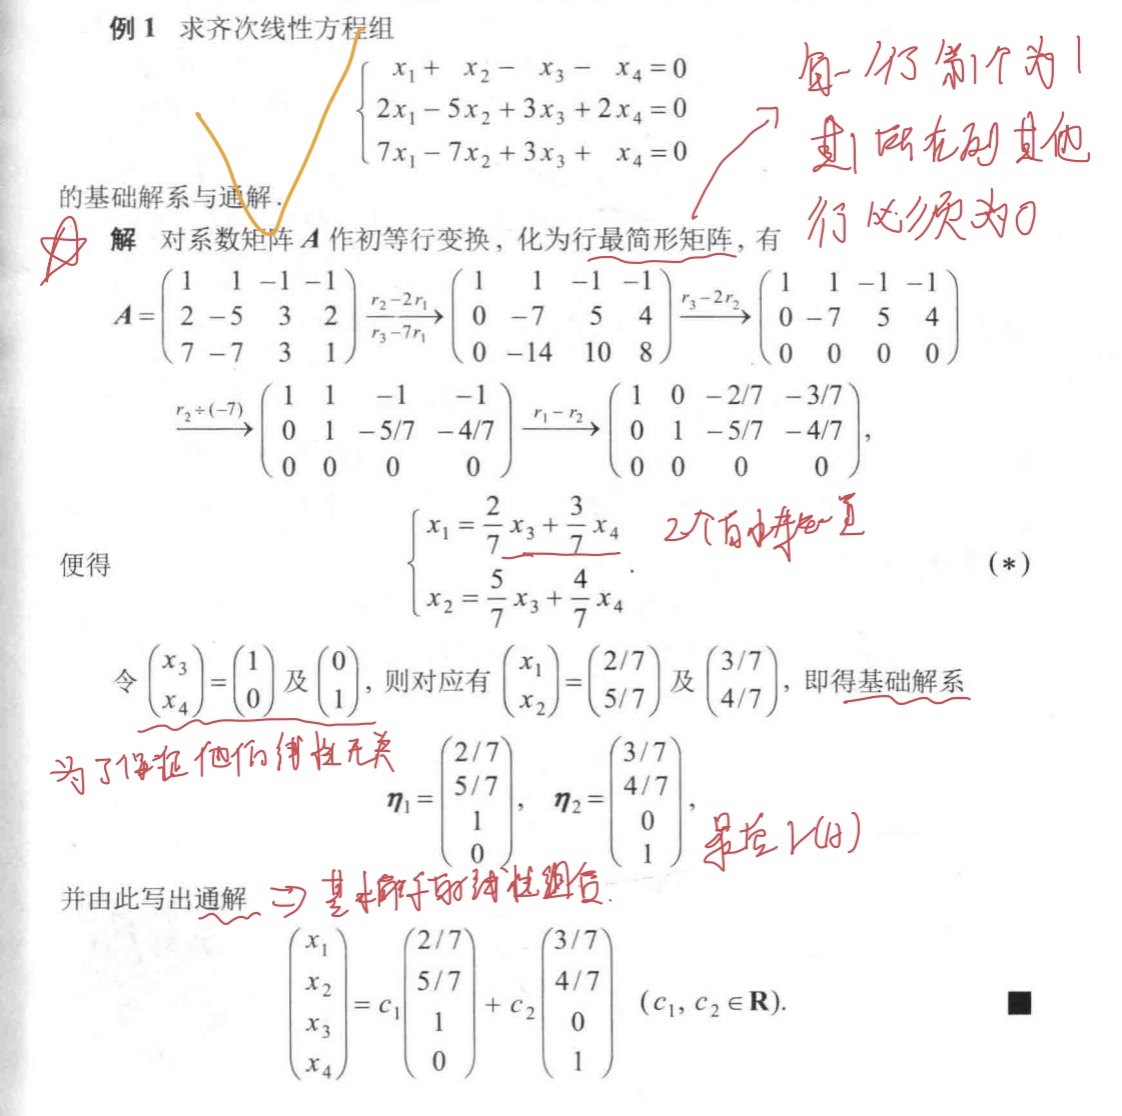 例 1 求齐次线性方程组
x₁ + x₂ − x₃ − x₄ = 0
2x₁ − 5x₂ + 3x₃ + 2x₄ = 0
7x₁ − 7x₂ + 3x₃ + x₄ = 0
每一行第1个为1
所在列其他
行必须为0
的基础解系与通解.
解 对系数矩阵 A 作初等行变换, 化为行最简形矩阵, 有
A = (1 1 −1 −1; 2 −5 3 2; 7 −7 3 1) r₂−2r₁ r₃−7r₁ → (1 1 −1 −1; 0 −7 5 4; 0 −14 10 8) r₃−2r₂ → (1 1 −1 −1; 0 −7 5 4; 0 0 0 0)
r₂÷(−7) → (1 1 −1 −1; 0 1 −5/7 −4/7; 0 0 0 0) r₁−r₂ → (1 0 −2/7 −3/7; 0 1 −5/7 −4/7; 0 0 0 0),
便得
x₁ = 2/7 x₃ + 3/7 x₄
x₂ = 5/7 x₃ + 4/7 x₄ .
(*)
2个自由
令 (x₃; x₄) = (1; 0) 及 (0; 1), 则对应有 (x₁; x₂) = (2/7; 5/7) 及 (3/7; 4/7), 即得基础解系
为了保证他们线性无关
η₁ = (2/7; 5/7; 1; 0), η₂ = (3/7; 4/7; 0; 1),
并由此写出通解
⇒ 基 的线性组合.
(x₁; x₂; x₃; x₄) = c₁ (2/7; 5/7; 1; 0) + c₂ (3/7; 4/7; 0; 1) (c₁, c₂ ∈ R).